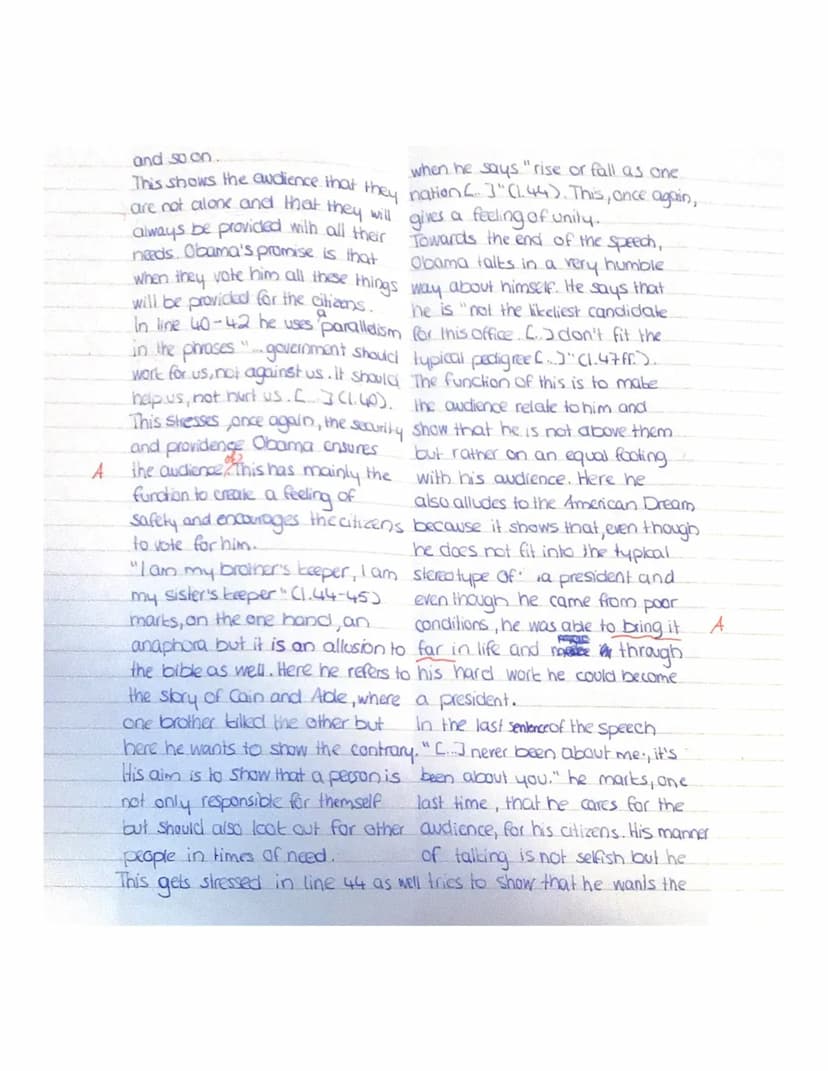 and so on.
This shows the audience that they
are not alone and that they will
always be provided with all their
needs. Obama's promise is that
when they vote him all these things
will be provided for the citizens.
a
In line 40-42 he uses parallelism
in the phrases "...government should
work for us, not against us. It should
help us, not hurt us. [...] (l.40).
This stresses, once again, the security
and providence Obama ensures
A the audience of. This has mainly the
function to create a feeling of
safety and encourages the citizens
to vote for him.
"I am my brother's keeper, I am
my sister's keeper" (l.44-45)
marks, on the one hand, an
anaphora but it is an allusion to
the bible as well. Here he refers to
the story of Cain and Able, where
one brother killed the other but
here he wants to show the contrary.
His aim is to show that a person is
not only responsible for themself
but should also look out for other
people in times of need.
This gets stressed in line 44 as well
when he says "rise or fall as one
nation [...]" (l.44). This, once again,
gives a feeling of unity.
Towards the end of the speech,
Obama talks in a very humble
way about himself. He says that
he is "not the likeliest candidate
for this office. [...] don't fit the
typical pedigree [...]" (l.47ff.).
The function of this is to make
the audience relate to him and
show that he is not above them
but rather on an equal footing
with his audience. Here he
also alludes to the American Dream
because it shows that, even though
he does not fit into the typical
stereotype of a president and
even though he came from poor
conditions, he was able to bring it A
far in life and through
his hard work he could become
a president.
In the last sentence of the speech
"[...] never been about me, it's
been about you." he marks, one
last time, that he cares for the
audience, for his citizens. His manner
of talking is not selfish but he
tries to show that he wants the